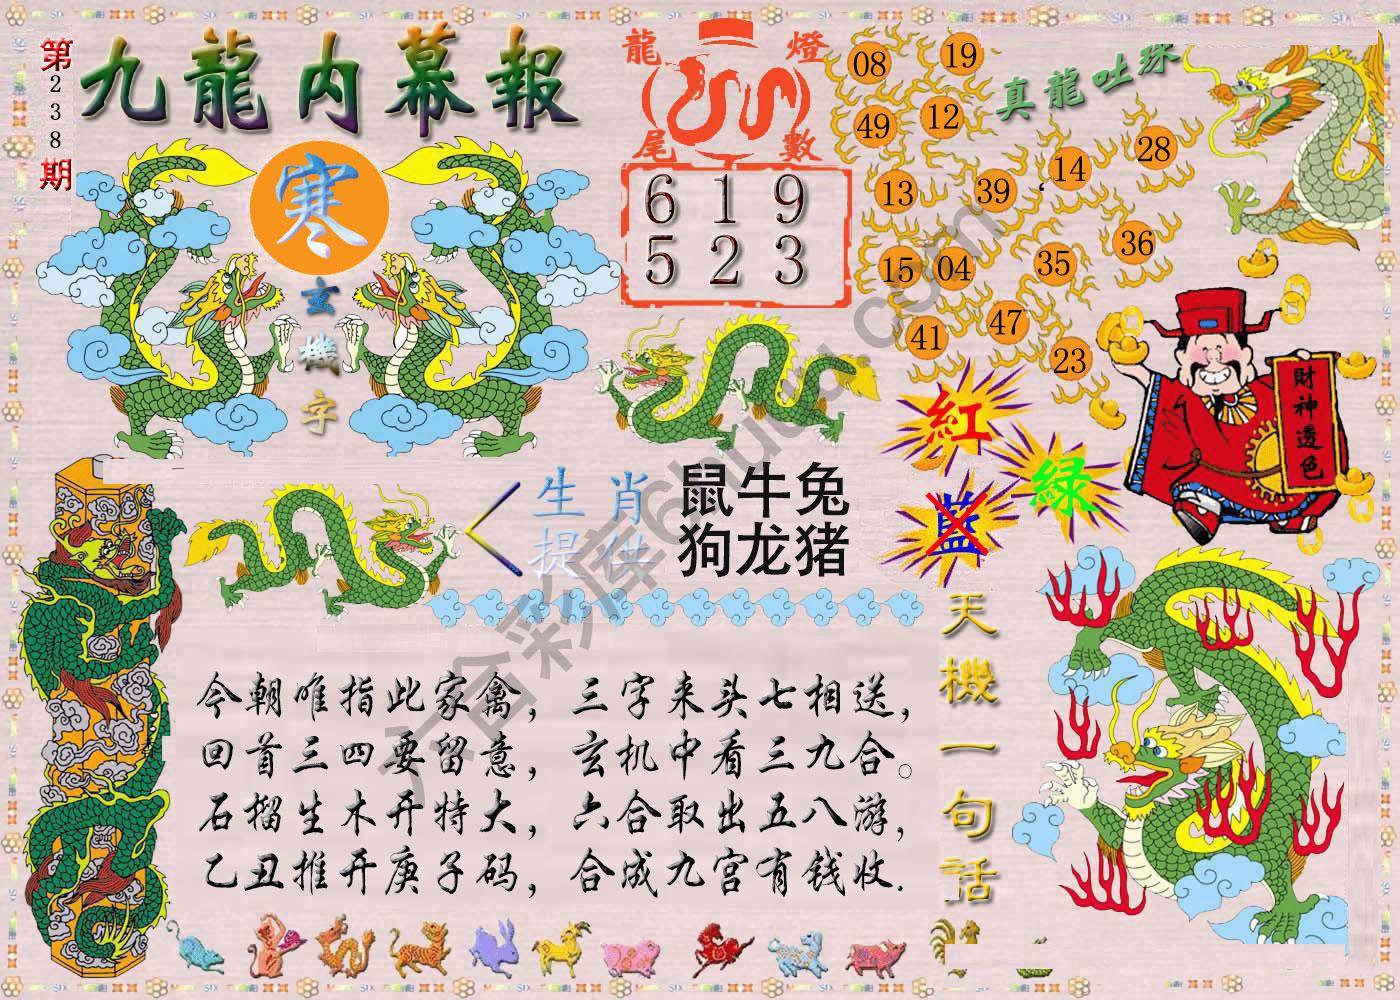 第238期
九龍内幕報
寒
玄機字
龍燈
尾數
6 1 9
5 2 3
真龍吐珠
08 19
49 12
13 39 14 28
15 04 35 36
41 47 23
財神透色
紅
綠
藍
生肖
提供
鼠牛兔
狗龙猪
天機一句話
今朝唯指此家禽，三字来头七相送，
回首三四要留意，玄机中看三九合。
石榴生木开特大，六合取出五八游，
乙丑推开庚子码，合成九宫有钱收.
六合彩库6huuu.com